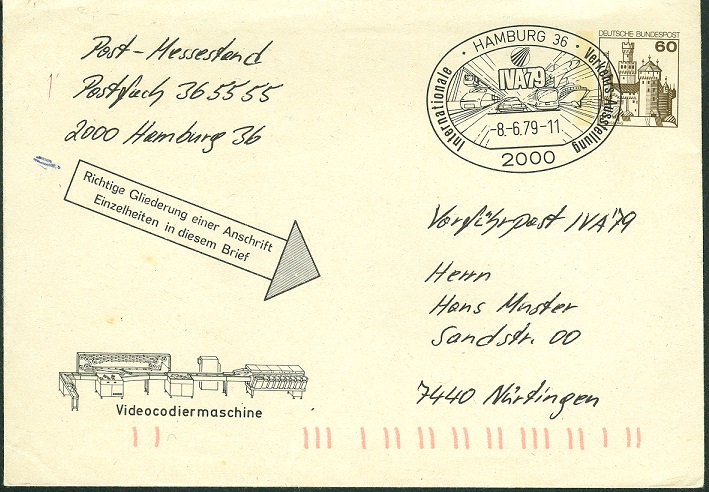 Post-Messestand
Postfach 36 55 55
2000 Hamburg 36
· HAMBURG 36 ·
Internationale · Verkehrs-Ausstellung
IVA79
-8.-6.79-11
2000
DEUTSCHE BUNDESPOST
60
Richtige Gliederung einer Anschrift
Einzelheiten in diesem Brief
Vorführpost IVA'79
Herrn
Hans Muster
Sandstr. 00
7440 Nürtingen
Videocodiermaschine